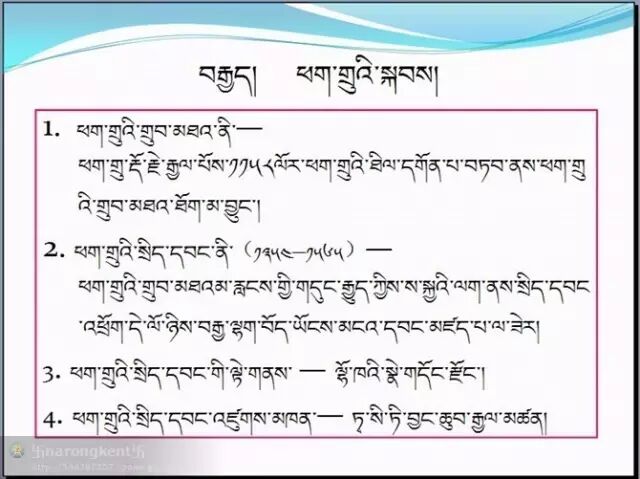 བརྒྱད། ཕག་གྲུའི་སྐབས།
1. ཕག་གྲུའི་གྲུབ་མཐའ་ནི་—
ཕག་གྲུ་རྡོ་རྗེ་རྒྱལ་པོས་༡༡༥༨ལོར་ཕག་གྲུའི་ཐིལ་དགོན་པ་བཏབ་ནས་ཕག་གྲུ
འི་གྲུབ་མཐའ་ཐོག་མ་བྱུང་།
2. ཕག་གྲུའི་སྲིད་དབང་ནི་（༡༣༥༤—༡༥༦༥）—
ཕག་གྲུའི་གྲུབ་མཐའམ་རླངས་ཀྱི་གདུང་རྒྱུད་ཀྱིས་ས་སྐྱའི་ལག་ནས་སྲིད་དབང
་འཕྲོག་དེ་ལོ་ཉིས་བརྒྱ་ལྷག་བོད་ཡོངས་མངའ་དབང་མཛད་པ་ལ་ཟེར།
3. ཕག་གྲུའི་སྲིད་དབང་གི་ལྟེ་གནས་ — ལྷོ་ཁའི་སྣེ་གདོང་རྫོང་།
4. ཕག་གྲུའི་སྲིད་དབང་འཛུགས་མཁན་— ཏཱ་སི་ཏི་བྱང་ཆུབ་རྒྱལ་མཚན།
卐narongkent卐